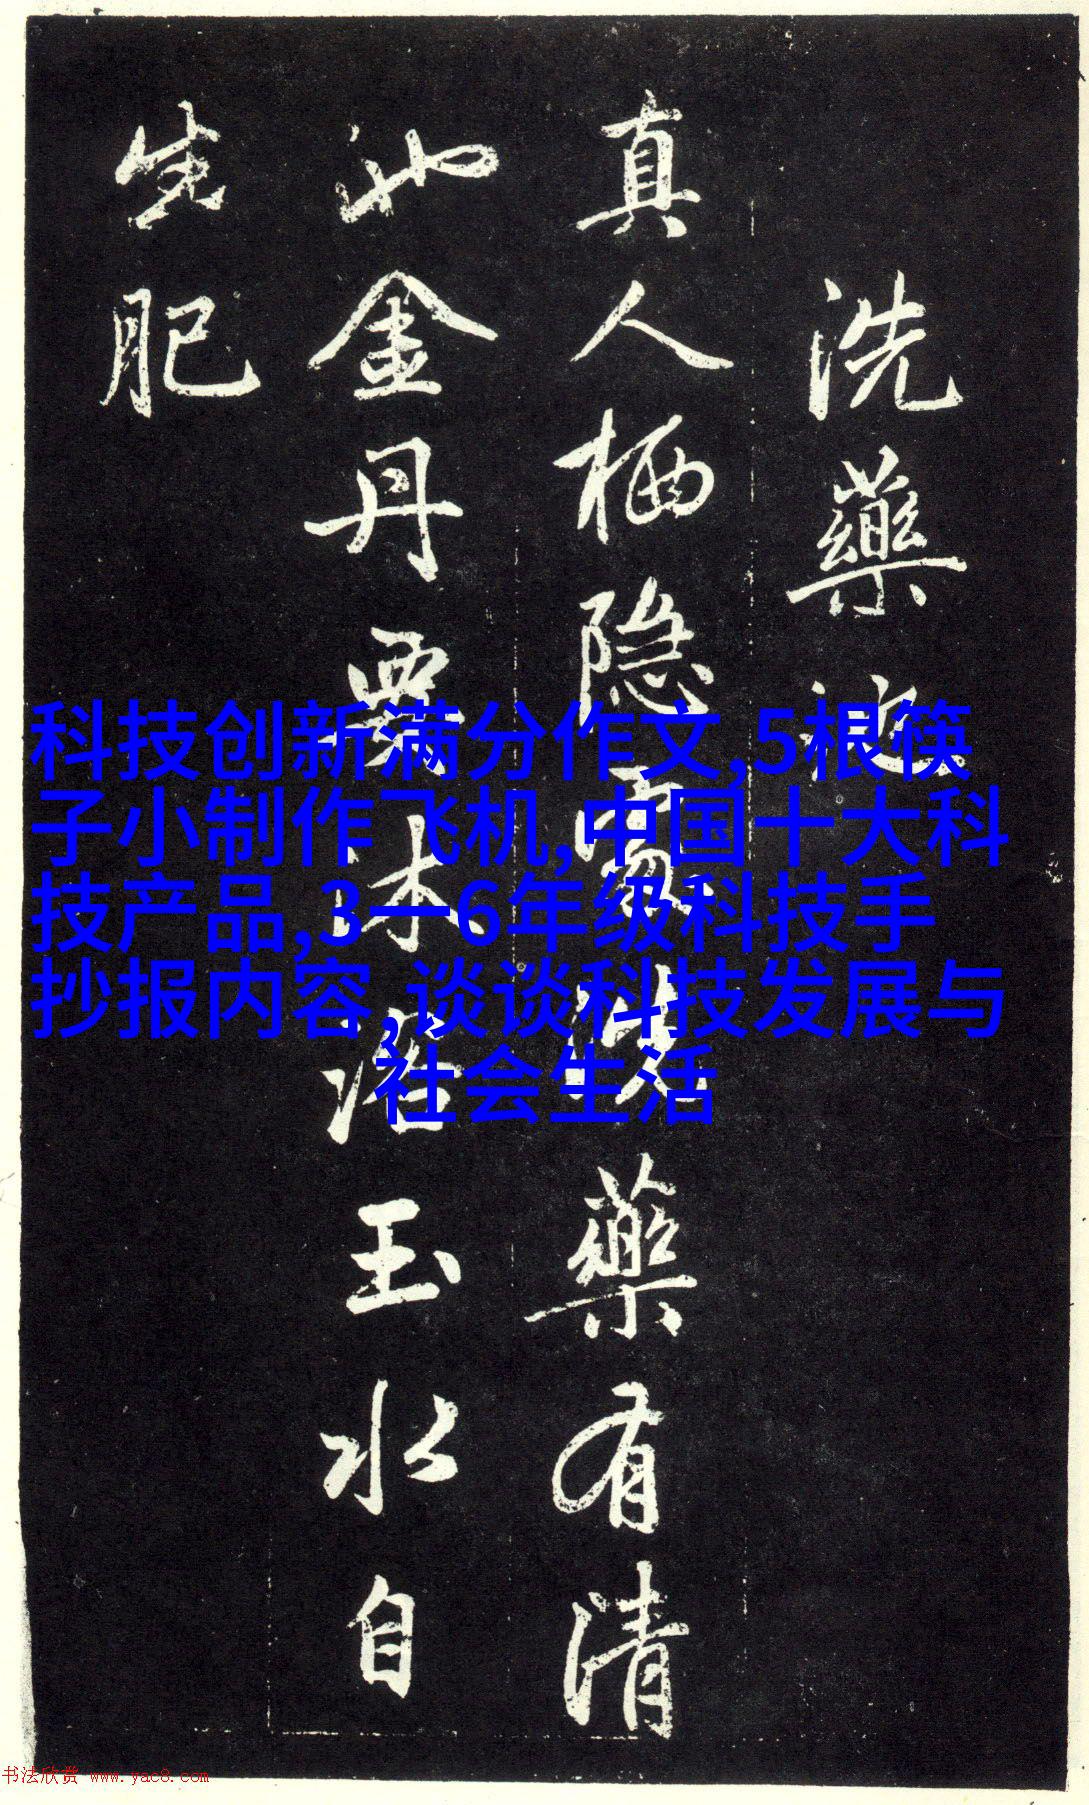 洗藥池
真人栖隐洗藥有清
池金丹要沐浴玉水自
生肥
科技创新满分作文,5根筷
子小制作飞机,中国十大科
技产品,3一6年级科技手
抄报内容,谈谈科技发展与
社会生活
书法欣赏 www.yac8.com